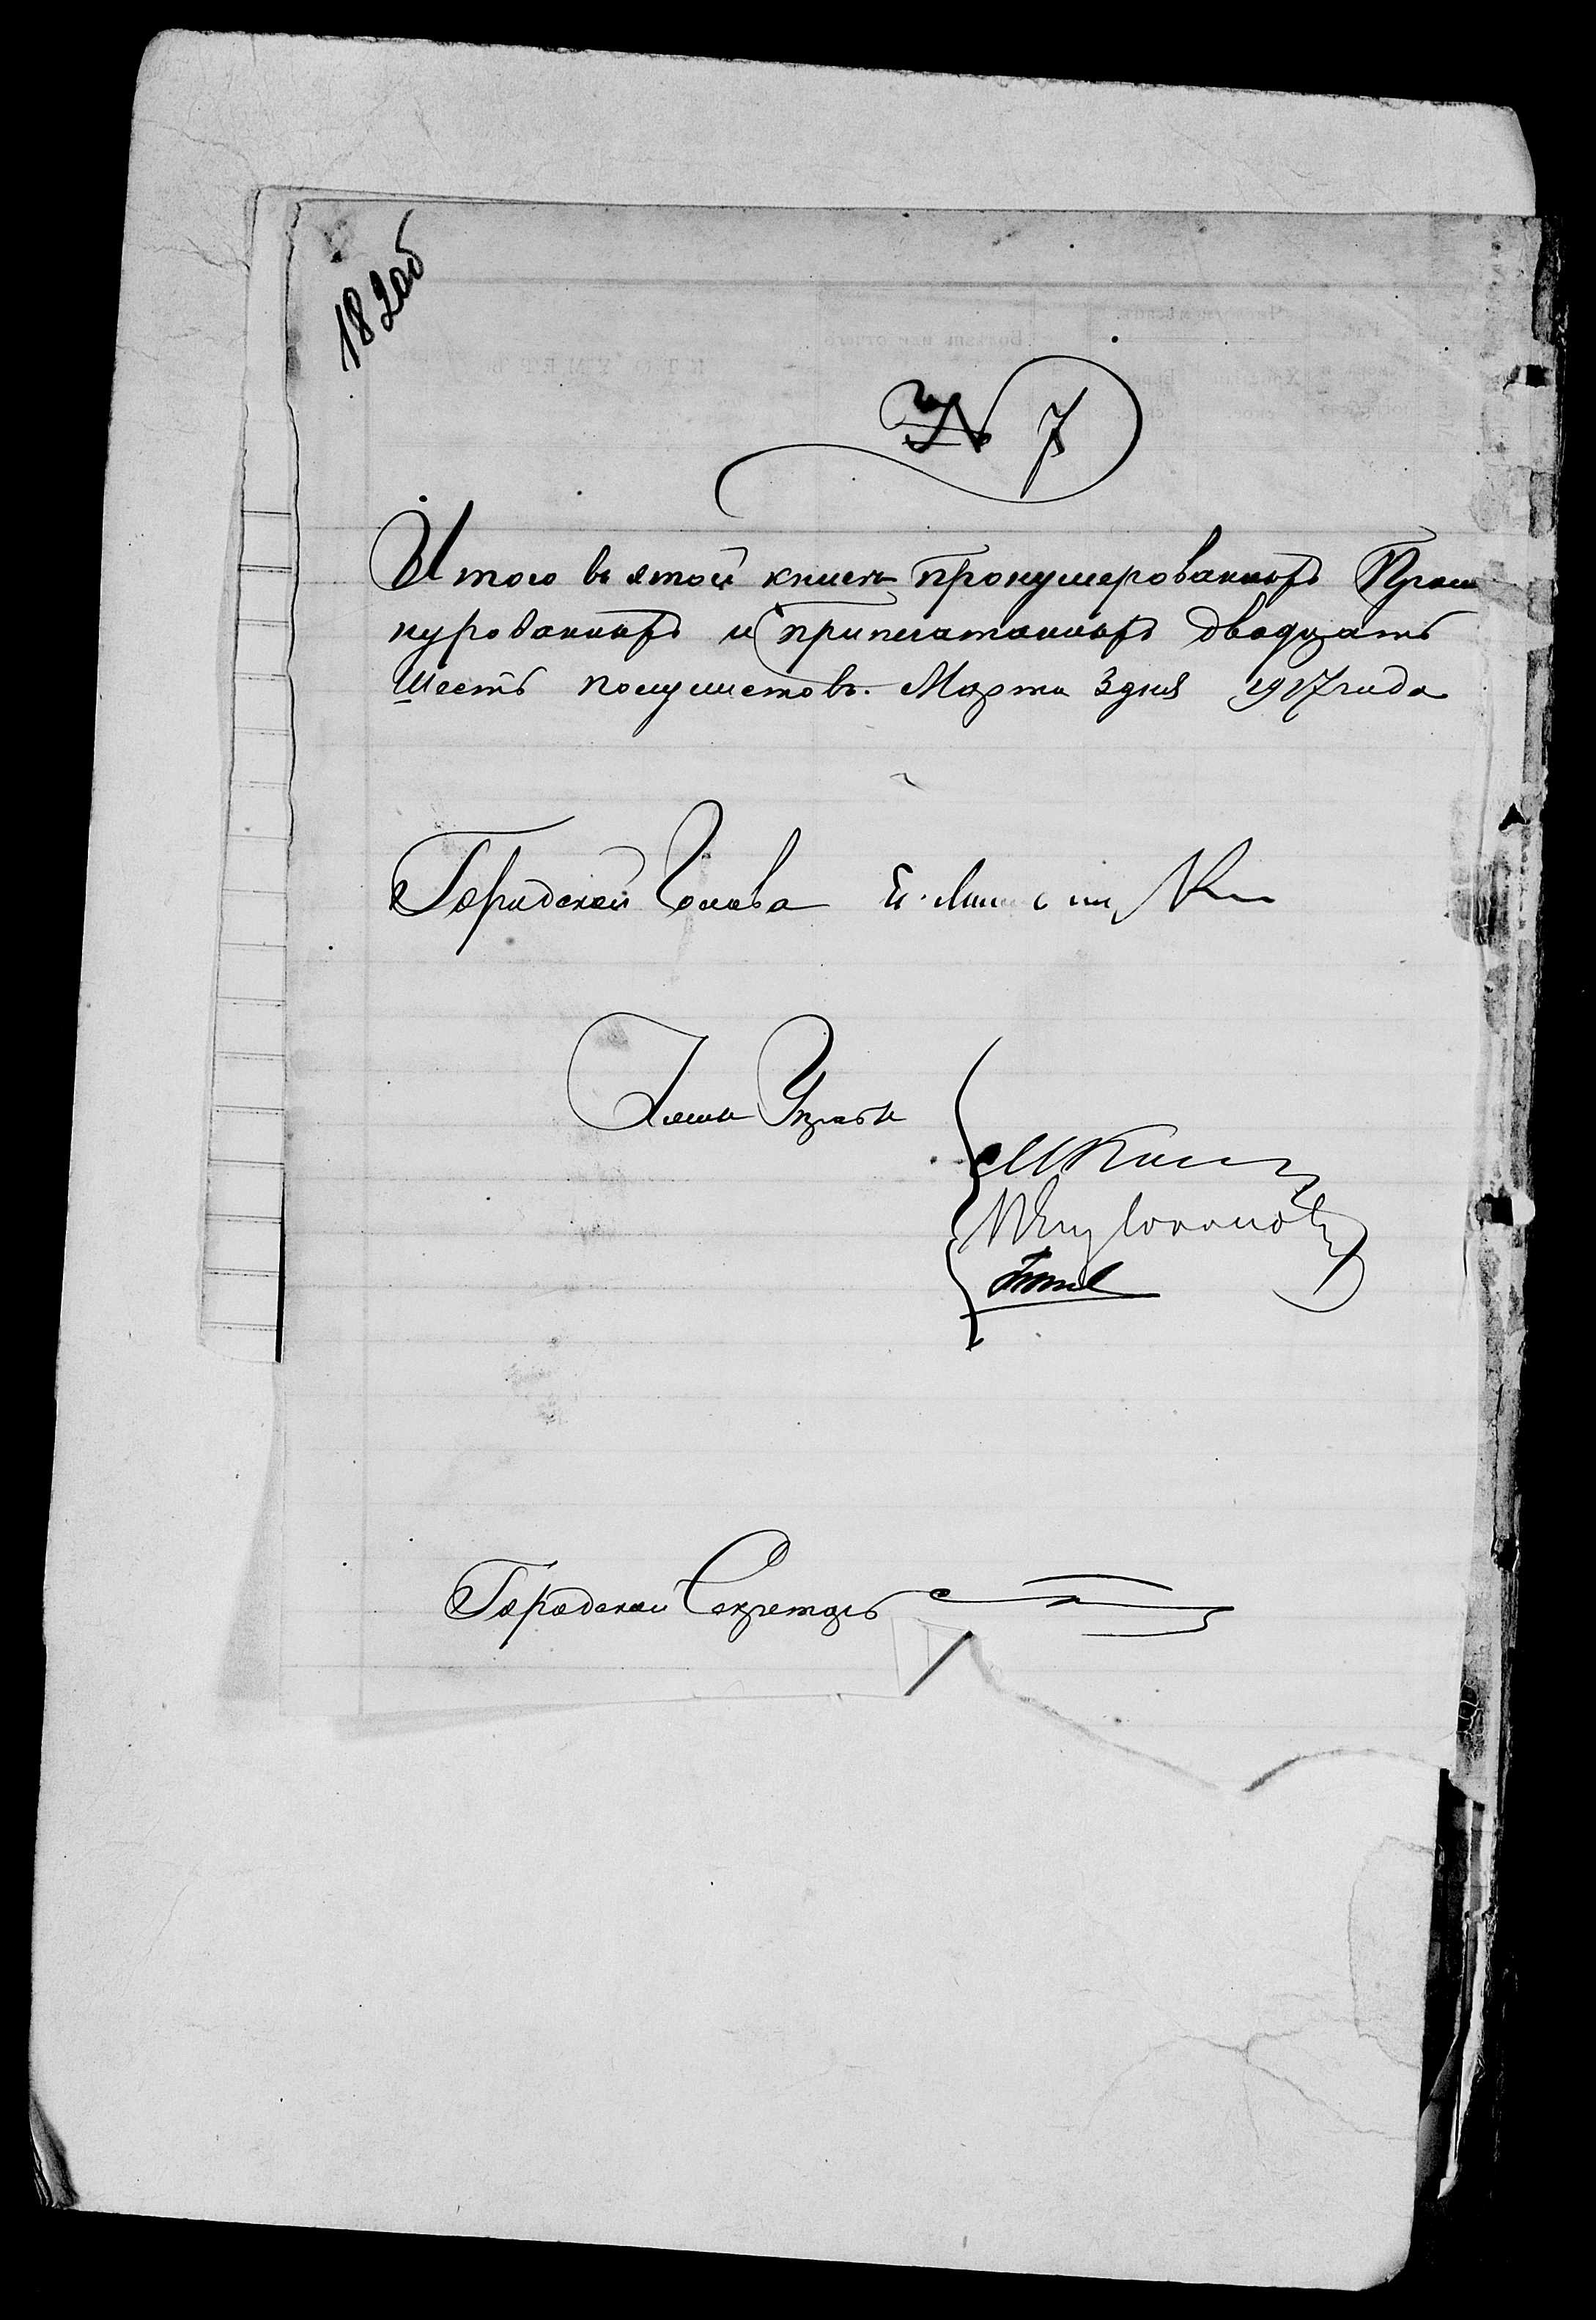 182об
№ 7
Итого въ этой книгѣ пронумерованныхъ Прош
нурованныхъ и припечатанныхъ двадцать
шесть полулистовъ. Марта 3 дня 1917 года
Городской Голова
Члены Управы
Городской Секретарь